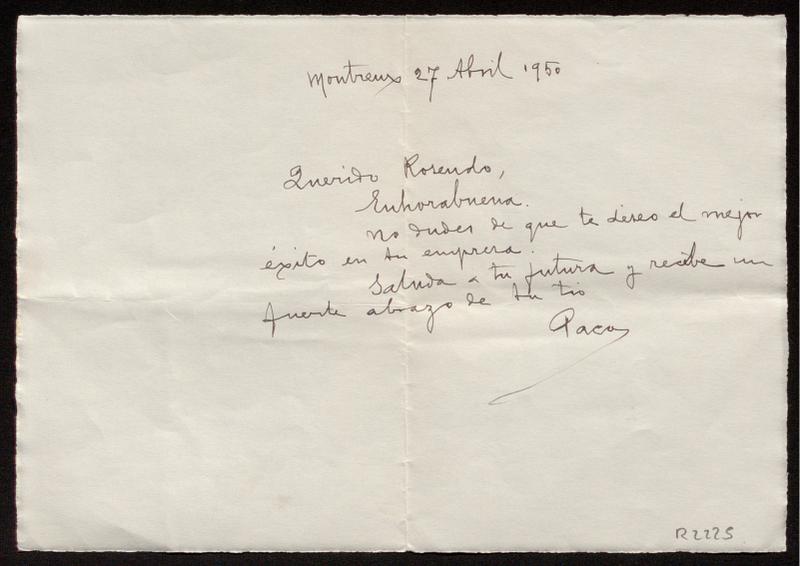 Montreux 27 Abril 1950
Querido Rosendo,
Enhorabuena.
No dudes de que te deseo el mejor
éxito en tu empresa.
Saluda a tu futura y recibe un
fuerte abrazo de tu tio
Paco
R2225